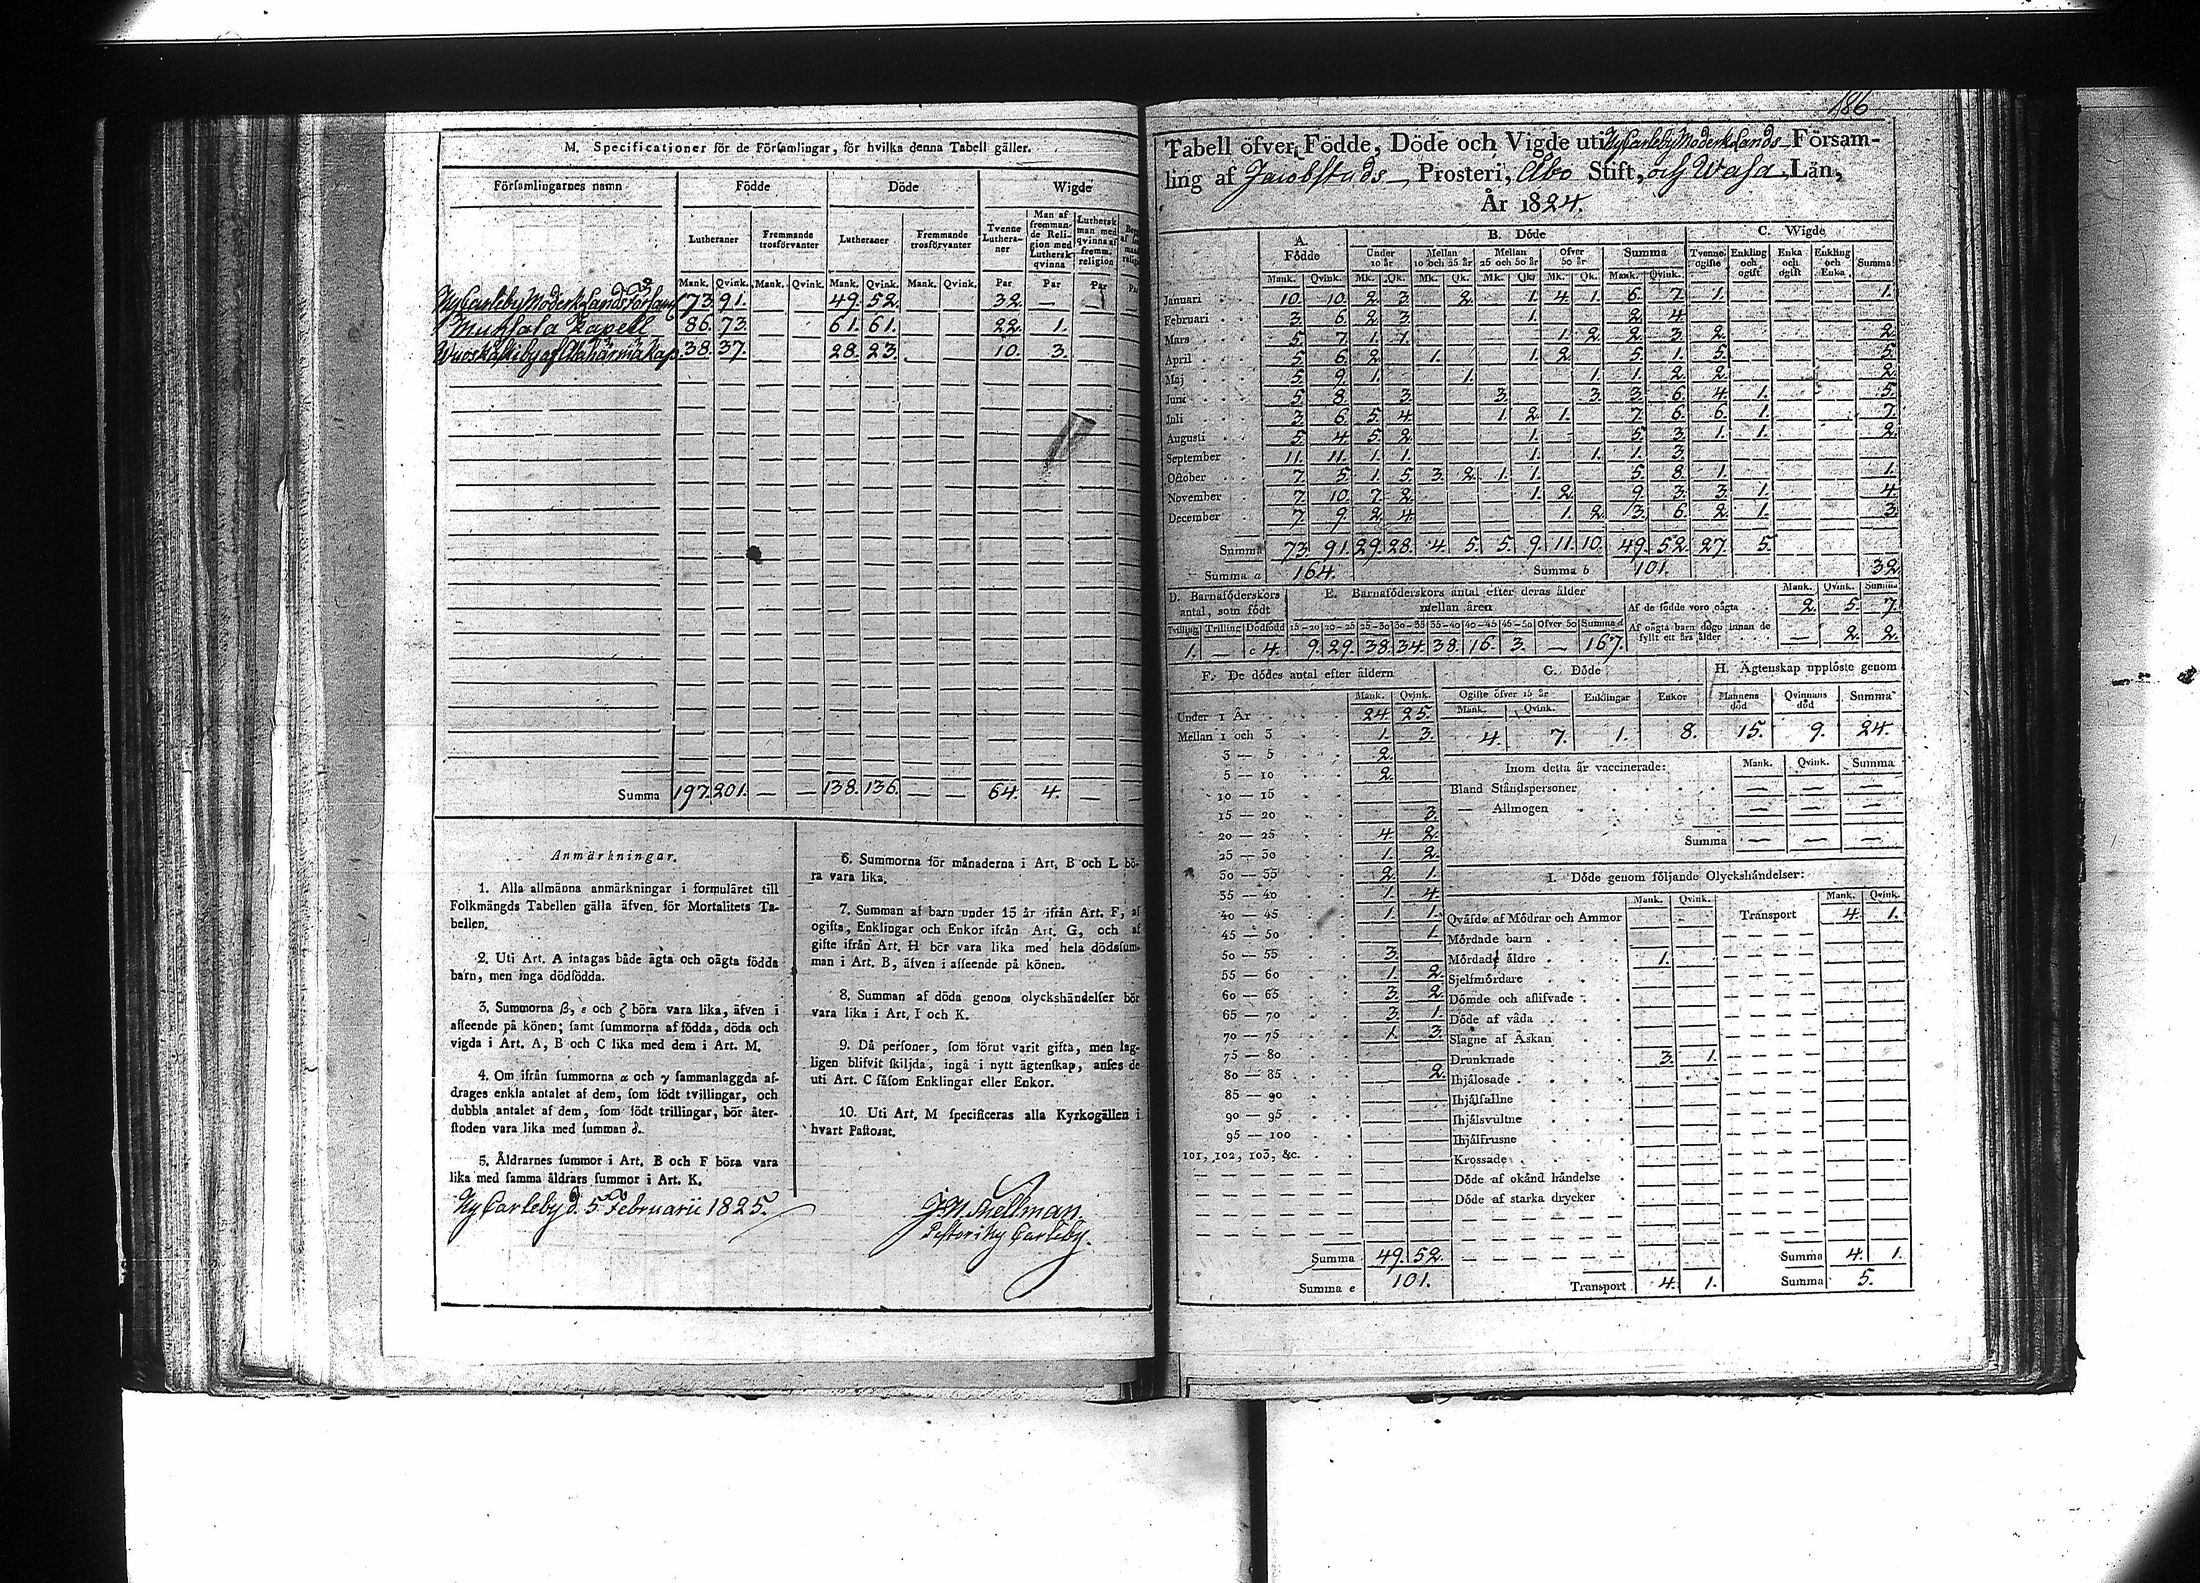 M. Specificationer för de Församlingar, för hvilka denna Tabell gäller.
Församlingarnes namn Födde Döde Wigde
Lutheraner Fremmande trosförvanter Lutheraner Fremmande trosförvanter Tvenne Lutheraner Man af frommande Religion med Luthersk qvinna Luthersk man med qvinna af fremm. religion
Mank. Qvink. Mank. Qvink. Mank. Qvink. Mank. Qvink. Par Par Par
Ny Carleby Moderk. Lands Församl 73. 91. — — 49. 52. — — 32. — —
Munsala Kapell 86. 73. — — 61. 61. — — 22. 1. —
38. 37. — — 28. 23. — — 10. 3. —
Summa 197. 201. — — 138. 136. — — 64. 4. — —
Anmärkningar.
1. Alla allmänna anmärkningar i formuläret till
Folkmängds Tabellen gälla äfven för Mortalitets Ta-
bellen.
2. Uti Art. A intagas både ägta och oägta födda
barn, men inga dödfödda.
3. Summorna β, ε och ζ böra vara lika, äfven i
afseende på könen; samt summorna af födda, döda och
vigda i Art. A, B och C lika med dem i Art. M.
4. Om ifrån summorna α och γ sammanlaggda af-
drages enkla antalet af dem, som födt tvillingar, och
dubbla antalet af dem, som födt trillingar, bör åter-
stoden vara lika med summan δ.
5. Åldrarnes summor i Art. B och F böra vara
lika med samma åldrars summor i Art. K.
Ny Carleby d. 5 Februarii 1825.
6. Summorna för månaderna i Art. B och L bö-
ra vara lika.
7. Summan af barn under 15 år ifrån Art. F, af
ogifta, Enklingar och Enkor ifrån Art. G, och af
gifte ifrån Art. H bör vara lika med hela dödssum-
man i Art. B, äfven i afseende på könen.
8. Summan af döda genom olyckshändelser bör
vara lika i Art. I och K.
9. Då personer, som förut varit gifta, men lag-
ligen blifvit skiljda, ingå i nytt ägtenskap, anses de
uti Art. C såsom Enklingar eller Enkor.
10. Uti Art. M specificeras alla Kyrkogällen i
hvart Pastorat.
Snellman.
Pastor i Ny Carleby.
186
Tabell öfver Födde, Döde och Vigde uti Ny Carleby Moderk. Lands Försam-
ling af Jacobstads Prosteri, Åbo Stift, och Wasa Län,
År 1824.
A. Födde B. Döde C. Wigde
Under 10 år Mellan 10 och 25 år Mellan 25 och 50 år Öfver 50 år Summa Tvenne ogifte Enkling och ogift Enka och ogift Enkling och Enka Summa
Mank. Qvink. Mk. Qk. Mk. Qk. Mk. Qk. Mk. Qk. Mank. Qvink.
Januari 10. 10. 2. 3. 2. 1. 4. 1. 6. 7. 1. 1.
Februari 3. 6. 2. 3. 1. 2. 4.
Mars 5. 7. 1. 1. 1. 2. 2. 3. 2. 2.
April 5. 6. 2. 1. 1. 2. 5. 1. 5. 5.
Maj 5. 9. 1. 1. 1. 1. 2. 2. 2.
Juni 5. 8. 3. 3. 3. 3. 6. 4. 1. 5.
Juli 3. 6. 5. 4. 1. 2. 1. 7. 6. 6. 1. 7.
Augusti 5. 4. 5. 2. 1. 5. 3. 1. 1. 2.
September 11. 11. 1. 1. 1. 1. 1. 3.
October 7. 5. 1. 5. 3. 2. 1. 1. 5. 8. 1. 1.
November 7. 10. 7. 2. 1. 2. 9. 3. 3. 1. 4.
December 7. 9. 2. 4. 1. 2. 3. 6. 2. 1. 3.
Summa 73. 91. 29. 28. 4. 5. 5. 9. 11. 10. 49. 52. 27. 5.
Summa a 164. Summa b 101. 32
D. Barnaföderskors antal, som födt E. Barnaföderskors antal efter deras ålder mellan åren Mank. Qvink. Summa
Tvilling Trilling Dödfödd 15-20 20-25 25-30 30-35 35-40 40-45 45-50 Öfver 50 Summa d
1. — c 4. 9. 29. 38. 34. 38. 16. 3. — 167.
Af de födde voro oägta 2. 5. 7.
Af oägta barn dogo innan de fyllt ett års ålder — 2. 2.
F. De dödes antal efter åldern
Mank. Qvink.
Under 1 År 24. 25.
Mellan 1 och 3 1. 3.
3 — 5 2.
5 — 10 2.
10 — 15
15 — 20 3.
20 — 25 4. 2.
25 — 30 1. 2.
30 — 35 2. 1.
35 — 40 1. 4.
40 — 45 1. 1.
45 — 50 1.
50 — 55 3.
55 — 60 1. 2.
60 — 65 3. 2.
65 — 70 3. 1.
70 — 75 1. 3.
75 — 80
80 — 85 2.
85 — 90
90 — 95
95 — 100
101, 102, 103, &c.
Summa 49. 52.
Summa e 101.
G. Döde H. Ägtenskap upplöste genom
Ogifte öfver 15 år Enklingar Enkor Mannens död Qvinnans död Summa
Mank. Qvink.
4. 7. 1. 8. 15. 9. 24.
Inom detta år vaccinerade: Mank. Qvink. Summa
Bland Ståndspersoner — — —
— Allmogen — — —
Summa — — —
I. Döde genom följande Olyckshändelser:
Mank. Qvink. Mank. Qvink.
Qväfde af Mödrar och Ammor Transport 4. 1.
Mördade barn
Mördade äldre 1.
Sjelfmördare
Dömde och aflifvade
Döde af våda
Slagne af Åskan
Drunknade 3. 1.
Ihjälosade
Ihjälfallne
Ihjälsvultne
Ihjälfrusne
Krossade
Döde af okänd händelse
Döde af starka drycker
Summa 4. 1.
Transport 4. 1. Summa 5.